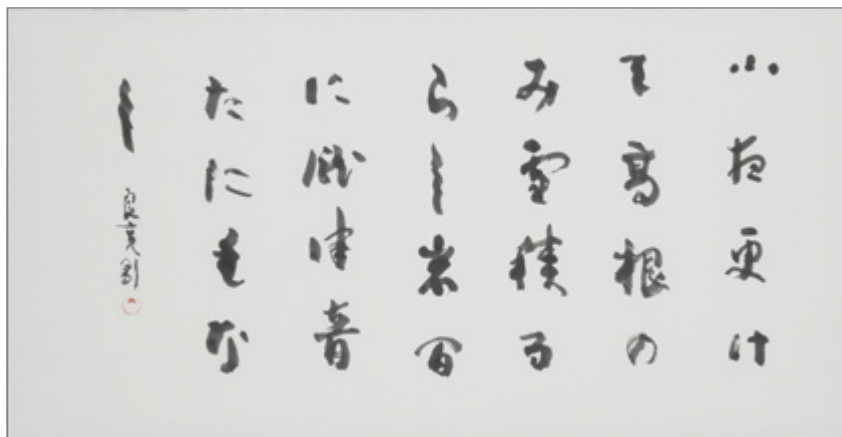 小夜更け
て高根の
み雪積る
らし岩間
に瀧津音
たにもな
し
良寛